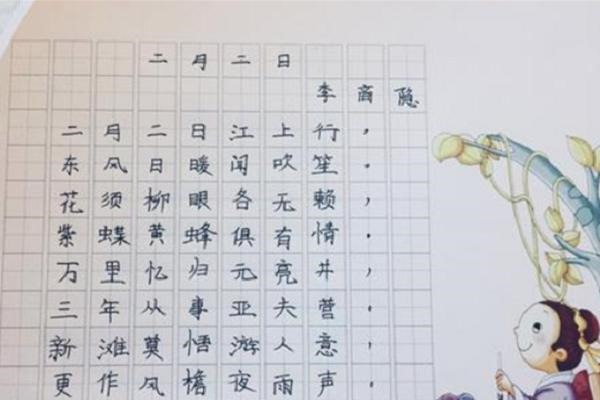 二月二日
李商隐
二月二日江上行，
东风日暖闻吹笙。
花须柳眼各无赖，
紫蝶黄蜂俱有情。
万里忆归元亮井，
三年从事亚夫营。
新滩莫悟游人意，
更作风檐夜雨声。